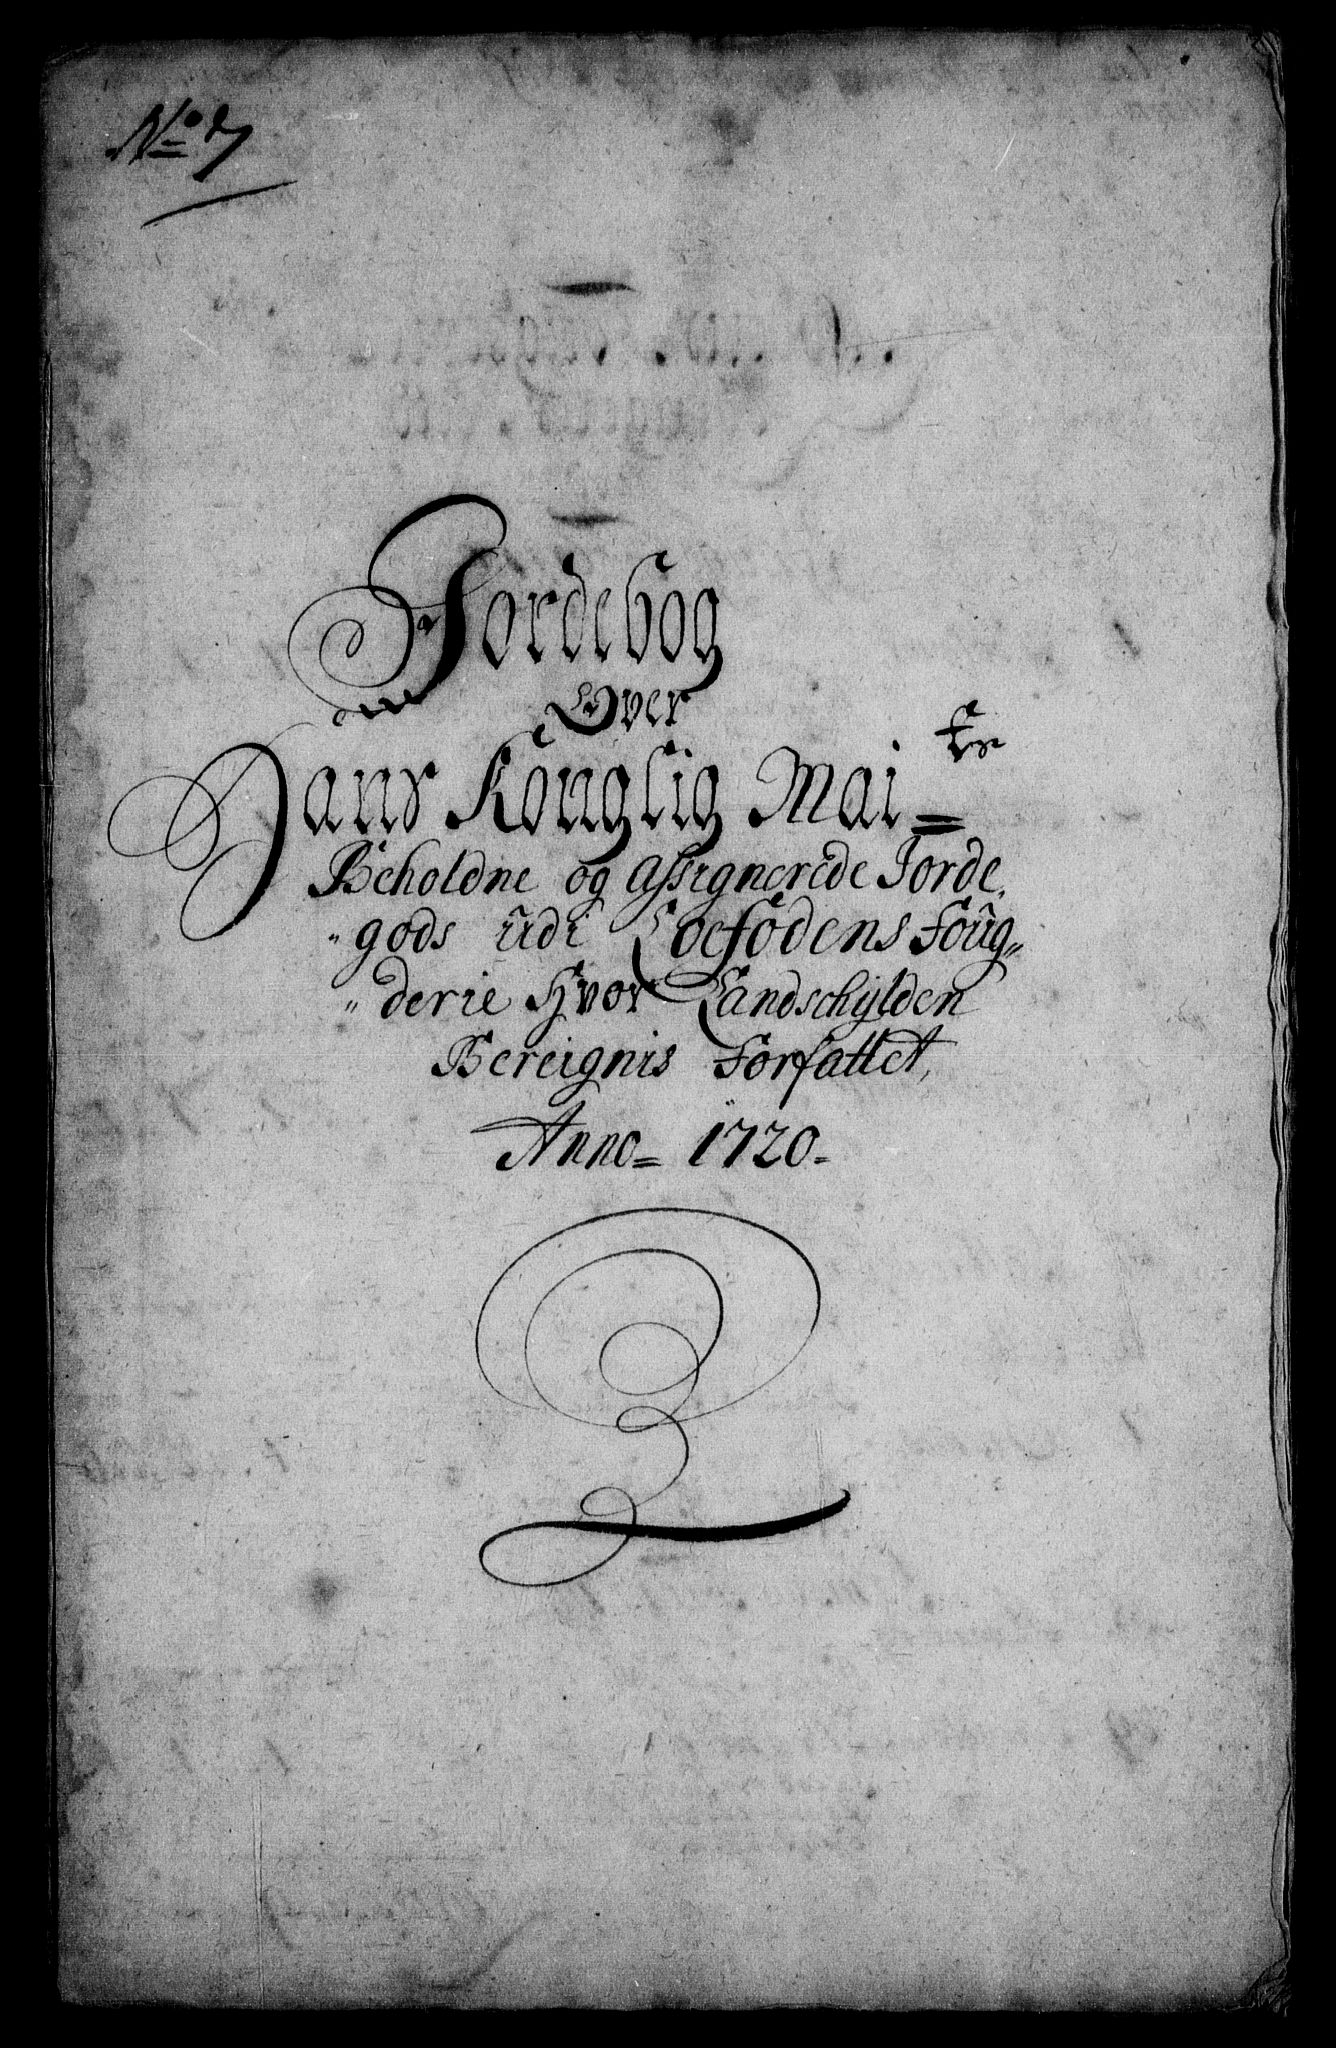 No 7
Jordebog
Over
Hans Konglig Mai=tz
Beholdne og Assignerede Jorde,
"gods udi Loefodens Foug"
"derie Hvor Landschylden
Bereignis Forfattet,
Anno= 1720-